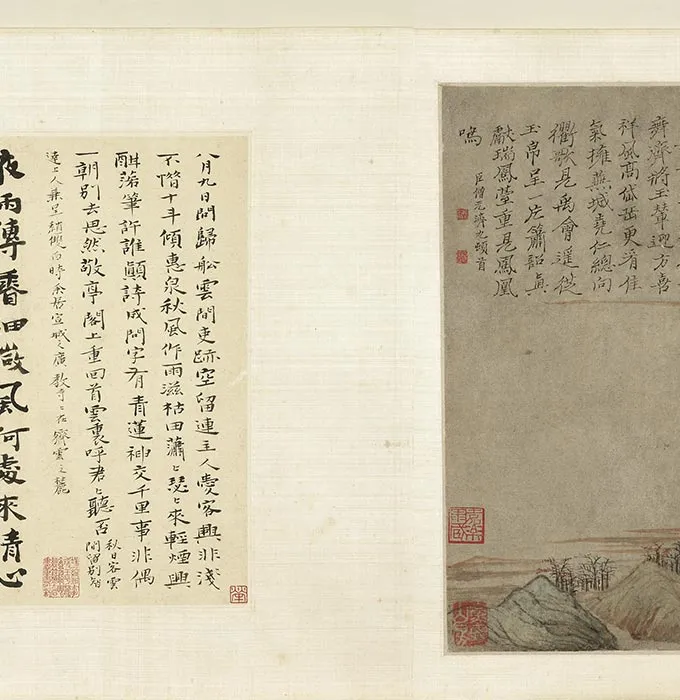 舞齊將玉輦迎方喜
祥風高岱岳更看佳
氣擁蕪城堯仁總向
衢歌見禹會遙從
玉帛呈一片簫韶真
獻瑞鳳臺重見鳳凰
鳴
臣僧元濟九頓首
八月九日問歸船雲間吏跡空留連主人愛客興非淺
不惜十斗傾惠泉秋風作雨滋枯田蕭〻瑟〻來輕煙興
酣落筆許誰顛詩成問字有青蓮神交千里事非偶
一朝別去思然敬亭閣上重回首雲裏呼君〻聽否
秋日客雲
間留別智
達上人兼呈時余居宣城之廣教寺〻在雲之麓
夜雨傳風何處來清心